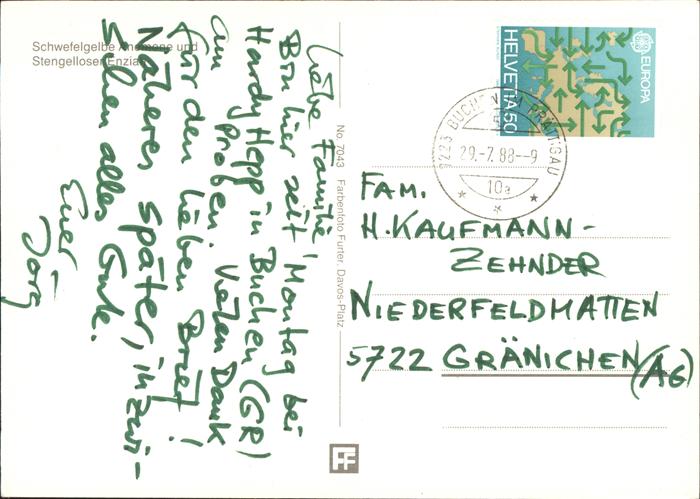 Schwefelgelbe Anemone und
Stengelloser Enzian
Liebe Familie,
Bin hier seit Montag bei
Hardy Hepp in Buchen (GR)
am Proben. Vielen Dank
für den lieben Brief!
Näheres später, inzwi-
schen alles Gute.
Euer
Jörg
No. 7043 Farbenfoto Furter, Davos-Platz
FF
HELVETIA 50
EUROPA
BUCHEN IM PRÄTTIGAU
29.-7.88--9
10a
FAM.
H. KAUFMANN-
ZEHNDER
NIEDERFELDMATTEN
5722 GRÄNICHEN (AG)